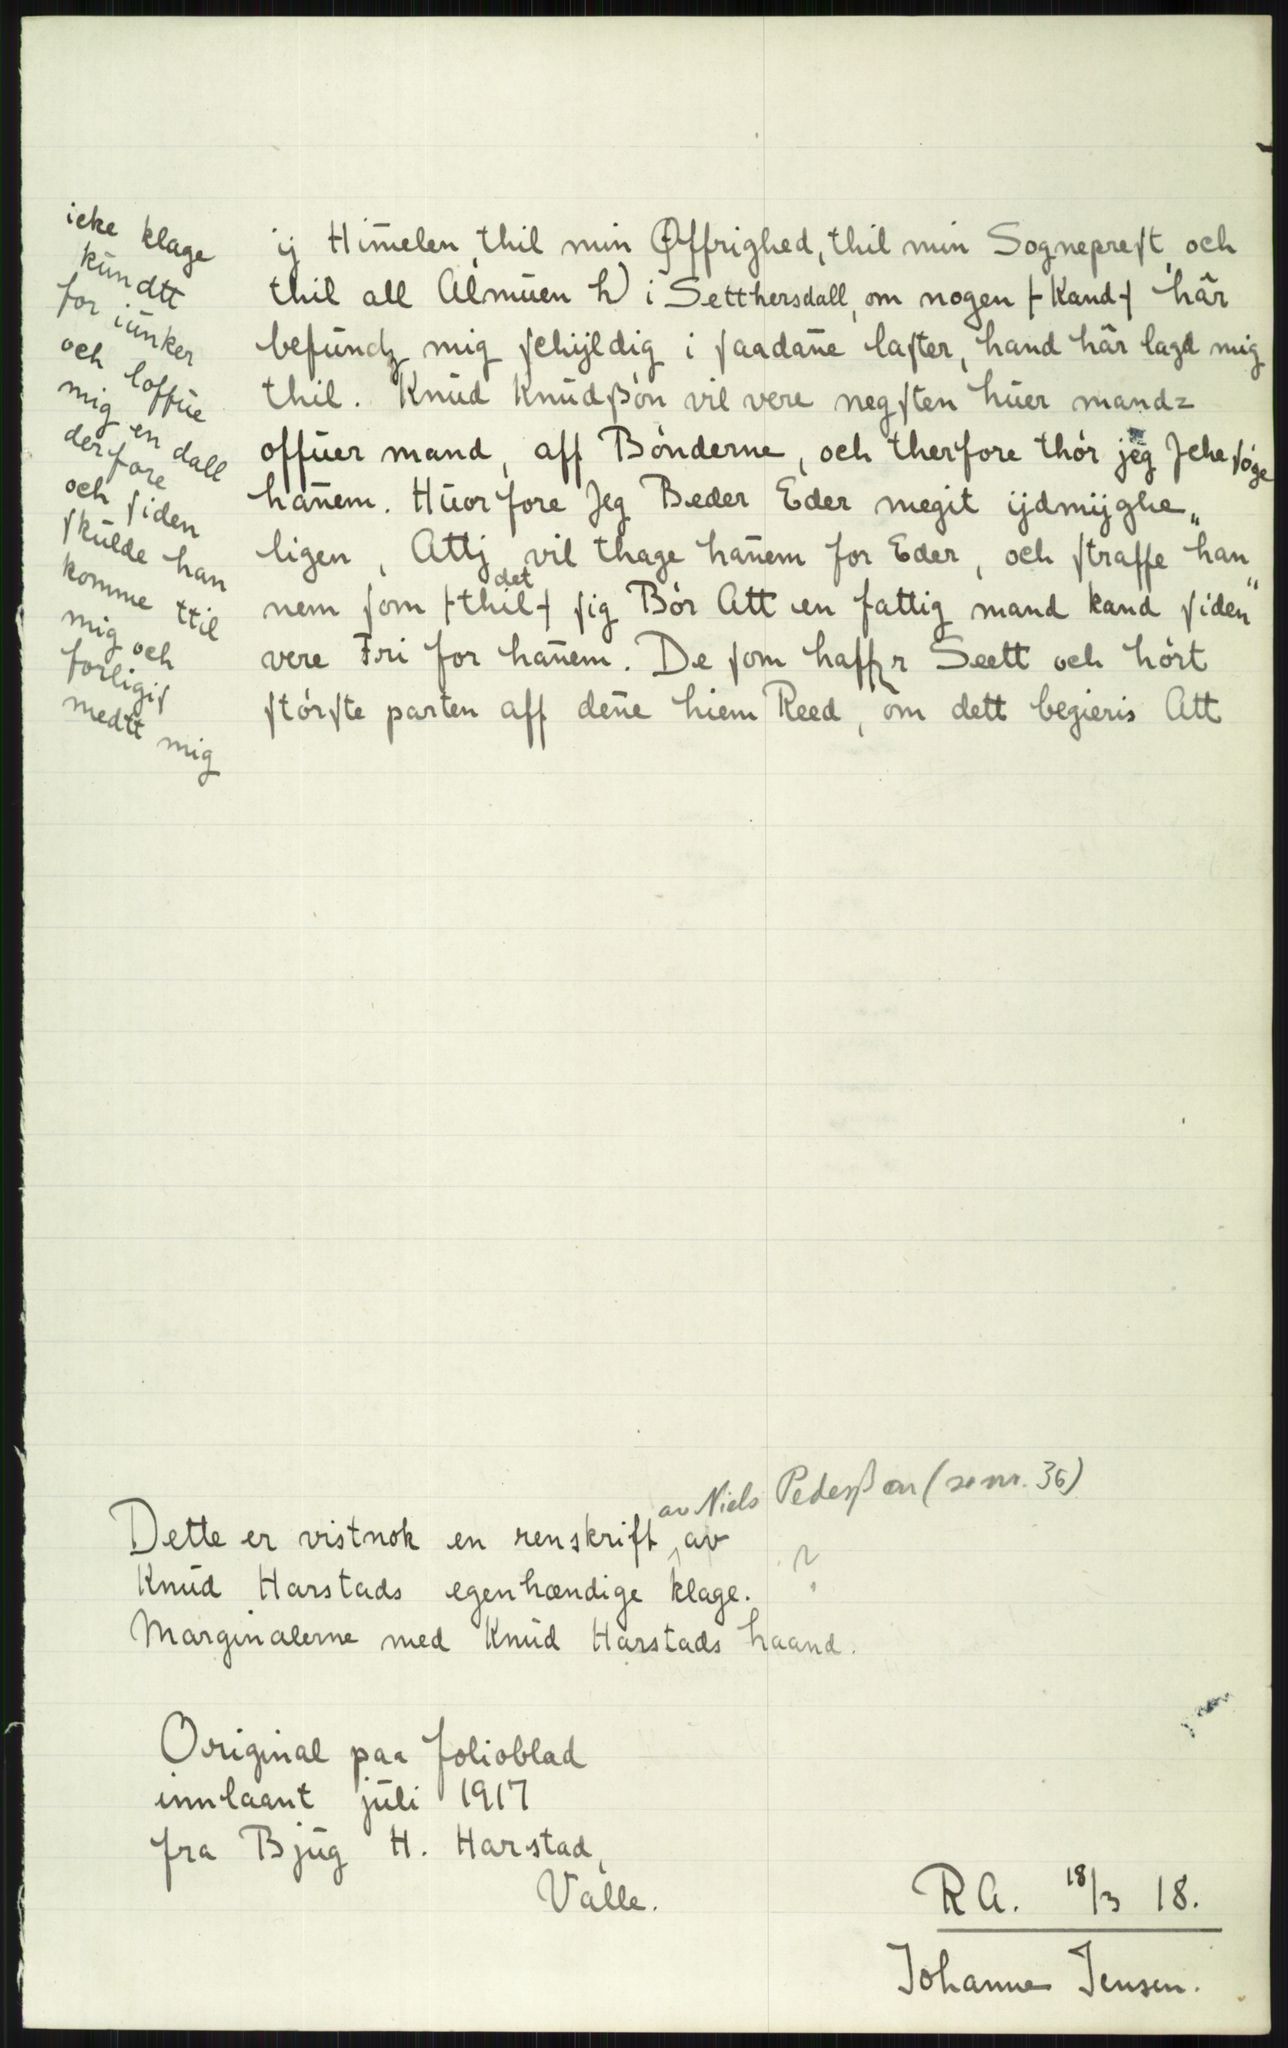 icke klage
kundtt
for iunker
och loffue
mig en dall
derfore
och siden
skulde han
komme ttil
mig och
forligis
medtt mig
ij Himelen, thil min Øffrighed, thil min Sogneprest, och
thil all Almuen h) i Setthersdall, om nogen ⊢Kand⊣ här
befundz mig schijldig i saadane laster, hand här lagd mig
thil. Knud Knudßön vil vere negsten huer mand=
offuer mand, aff Bönderne, och therfore thör jeg Jche söge
hanem. Huorfore Jeg Beder Eder megit ijdmijghe„
ligen, Attj vil thage hanem for Eder, och straffe han„
det
nem som ⊢thil⊣ sig Bör Att en fattig mand kand siden
vere Fri for hanem. De som haffr Seett och hört
störste parten aff dene hiem Reed, om dett begieris Att
av Niels Pederßøn (se nr. 36)
Dette er vistnok en renskrift av
Knud Harstads egenhændige klage. ?
Marginalerne med Knud Harstads haand.
Original paa folioblad
innlaant juli 1917
fra Bjug H. Harstad,
Valle.
R A. 18/3 18.
Johanne Jensen.